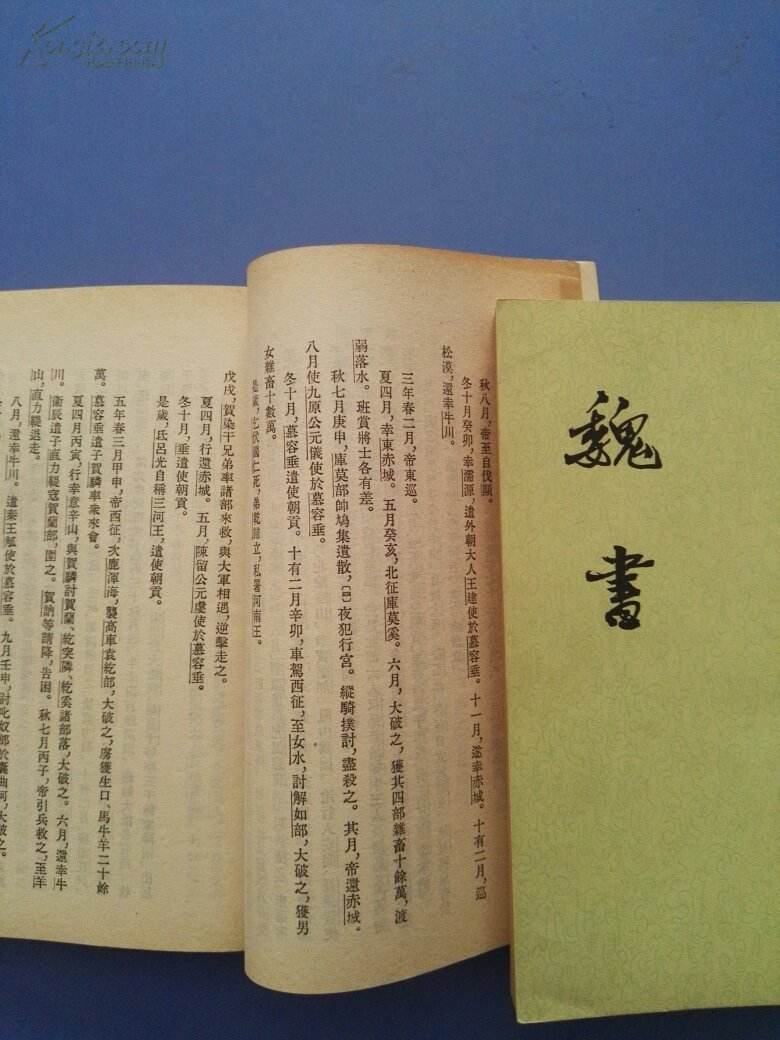 魏書
秋八月，帝至自伐顯。
冬十月癸卯，幸濡源，遣外朝大人王建使於慕容垂。十一月，遂幸赤城。十有二月，巡
松漠，還幸牛川。
三年春二月，帝東巡。
夏四月，幸東赤城。五月癸亥，北征庫莫奚。六月，大破之，獲其四部雜畜十餘萬，渡
弱落水。班賞將士各有差。
秋七月庚申，庫莫部帥鳩集遺散，〔四〕夜犯行宮。縱騎撲討，盡殺之。其月，帝還赤城。
八月使九原公元儀使於慕容垂。
冬十月，慕容垂遣使朝貢。十有二月辛卯，車駕西征，至女水，討解如部，大破之，獲男
女雜畜十數萬。
是歲，乞伏國仁死，弟乾歸立，私署河南王。
戊戌，賀染干兄弟率諸部來救，與大軍相遇，逆擊走之。
夏四月，行還赤城。五月，陳留公元虔使於慕容垂。
冬十月，垂遣使朝貢。
是歲，氐呂光自稱三河王，遣使朝貢。
五年春三月甲申，帝西征，次鹿渾海，襲高車袁紇部，大破之，虜獲生口、馬牛羊二十餘
萬。慕容垂遣子賀驎率衆來會。
夏四月丙寅，行幸意辛山，與賀驎討賀蘭、紇突隣、紇奚諸部落，大破之。六月，還幸牛
川。衛辰遣子直力鞮寇賀蘭部，圍之。賀訥等請降，告困。秋七月丙子，帝引兵救之，至羊
山，直力鞮退走。
八月，還幸牛川。遣秦王觚使於慕容垂。九月壬申，討叱奴部於囊曲河，大破之。